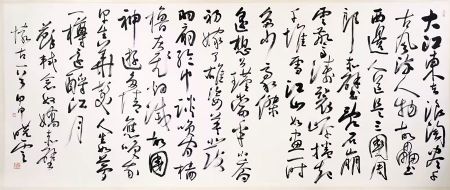 大江東去浪淘盡千
古風流人物故壘
西邊人道是三國周
郎赤壁亂石崩
雲驚濤裂岸捲起
千堆雪江山如畫一時
多少豪傑
遙想公瑾當年小喬
初嫁了雄姿英發
羽扇綸巾談笑間
檣櫓灰飛煙滅故國
神遊多情應笑我
早生華髮人生如夢
一樽還酹江月
蘇軾念奴嬌赤壁
懷古